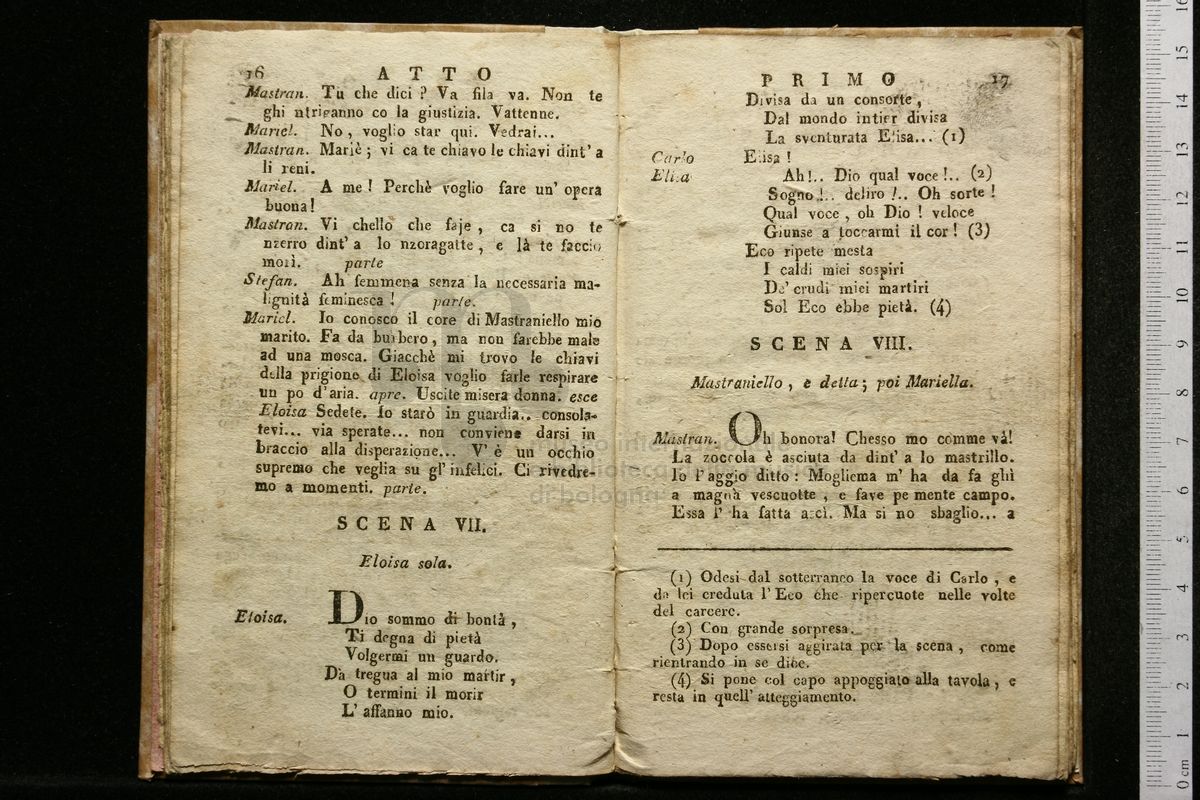 16 ATTO
Mastran. Tu che dici ? Va fila va. Non te
ghi ntricanno co la giustizia. Vattenne.
Mariel. No , voglio star qui. Vedrai...
Mastran. Mariè ; vi ca te chiavo le chiavi dint' a
li reni.
Mariel. A me ! Perchè voglio fare un' opera
buona !
Mastran. Vi chello che faje , ca si no te
nzerro dint' a lo nzoragatte , e là te faccio
morì. parte
Stefan. Ah femmena senza la necessaria ma-
lignità feminesca ! parte.
Mariel. Io conosco il core di Mastraniello mio
marito. Fa da burbero , ma non farebbe male
ad una mosca. Giacchè mi trovo le chiavi
della prigione di Eloisa voglio farle respirare
un po d'aria. apre. Uscite misera donna. esce
Eloisa Sedete. Io starò in guardia.. consola-
tevi... via sperate... non conviene darsi in
braccio alla disperazione... V' è un occhio
supremo che veglia su gl' infelici. Ci rivedre-
mo a momenti. parte.
SCENA VII.
Eloisa sola.
Eloisa. Dio sommo di bontà ,
Ti degna di pietà
Volgermi un guardo.
Dà tregua al mio martir ,
O termini il morir
L' affanno mio.
PRIMO 17
Divisa da un consorte ,
Dal mondo intier divisa
La sventurata Elisa... (1)
Carlo Elisa !
Elisa Ah !.. Dio qual voce !.. (2)
Sogno !.. deliro !.. Oh sorte !
Qual voce , oh Dio ! veloce
Giunse a toccarmi il cor ! (3)
Eco ripete mesta
I caldi miei sospiri
De' crudi miei martiri
Sol Eco ebbe pietà. (4)
SCENA VIII.
Mastraniello , e detta ; poi Mariella.
Mastran. Oh bonora! Chesso mo comme và!
La zoccola è asciuta da dint' a lo mastrillo.
Io l'aggio ditto : Mogliema m' ha da fa ghì
a magnà vescuotte , e fave pe mente campo.
Essa l' ha fatta ascì. Ma si no sbaglio... a
(1) Odesi dal sotterraneo la voce di Carlo , e
da lei creduta l' Eco che ripercuote nelle volte
del carcere.
(2) Con grande sorpresa.
(3) Dopo essersi aggirata per la scena , come
rientrando in se dice.
(4) Si pone col capo appoggiato alla tavola , e
resta in quell' atteggiamento.